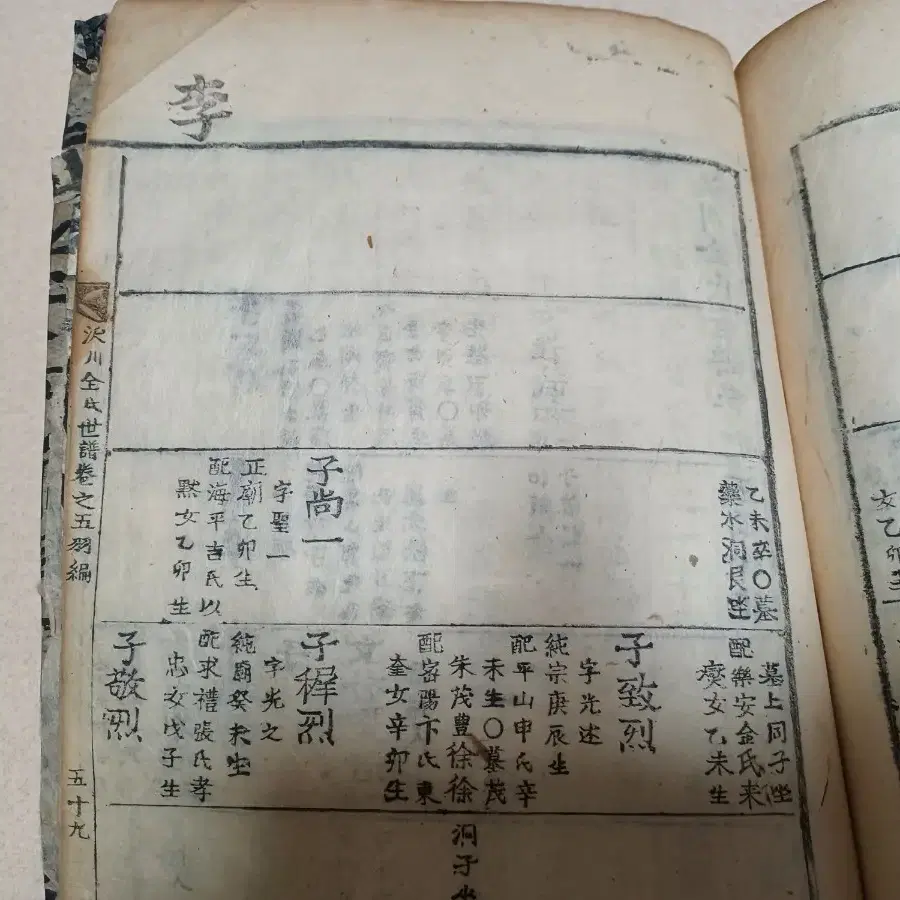 李
女乙卯生
乙未卒〇墓
藥水洞艮坐
子尚一
字聖一
正廟乙卯生
配海平吉氏以
默女乙卯生
墓上同子坐
配樂安金氏来
燮女乙未生
子致烈
字光述
純宗庚辰生
配平山申氏辛
未生〇墓茂
朱茂豊徐徐
配密陽卞氏東
奎女辛卯生
子穉烈
字光之
純廟癸未生
配求禮張氏孝
忠女戊子生
子敬烈
洞子坐
沃川全氏世譜卷之五羽編
五十九